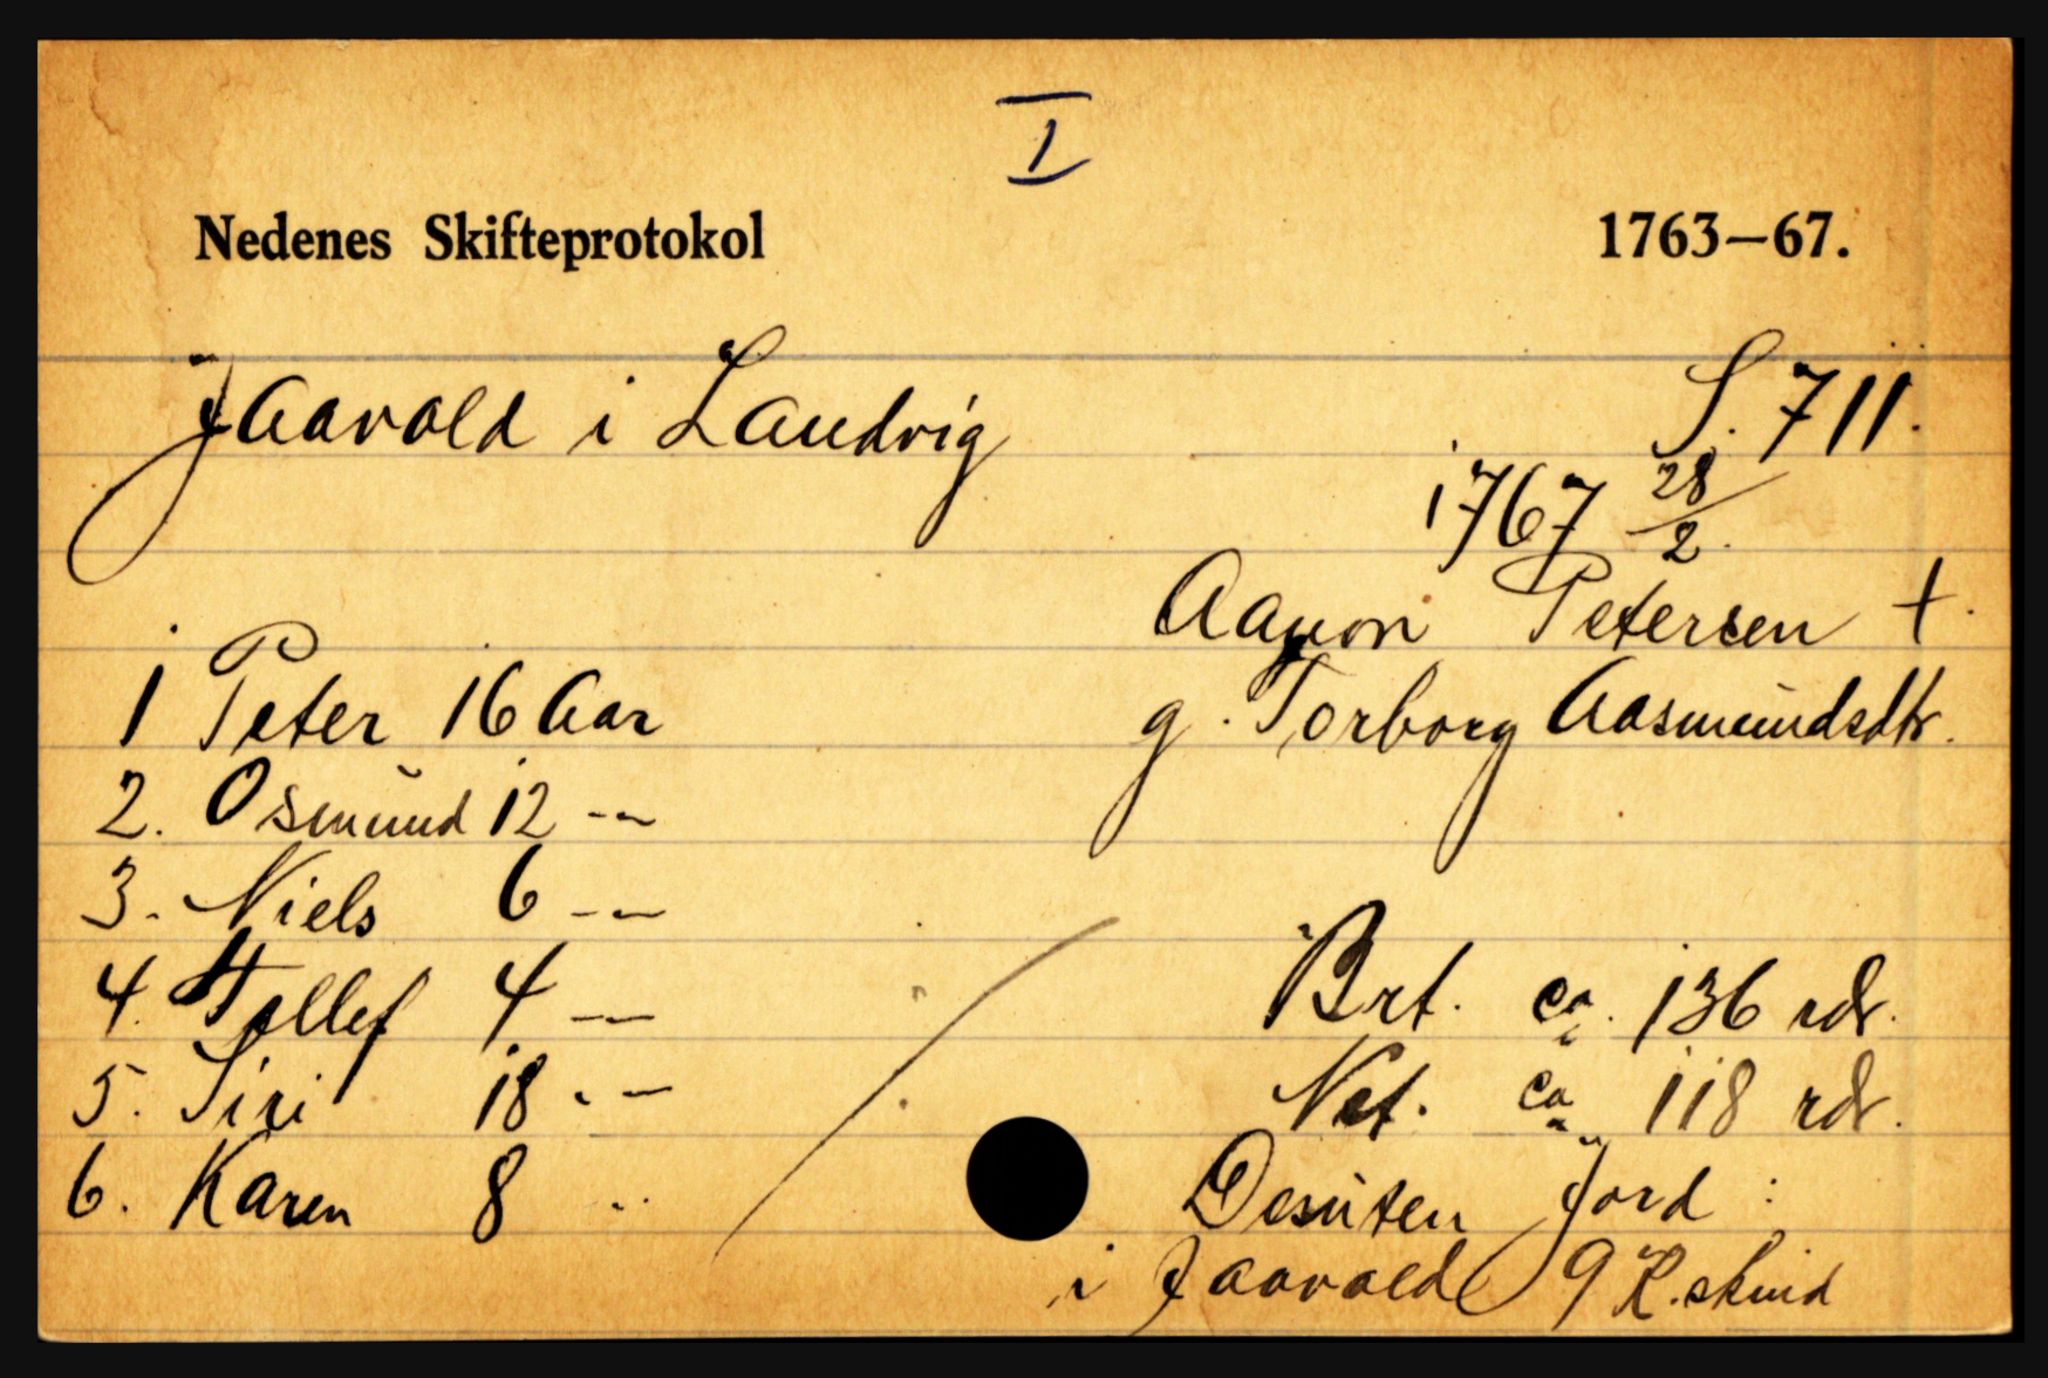 I
Nedenes Skifteprotokol 1763—67.
Jaavold i Landvig S. 711.
1767 28/2.
Aanon Petersen +.
1 Peter 16 Aar g. Torborg Aasmundsdtr.
2. Osmund 12 --
3. Niels 6 --
4. Tellef 4 -- Brt. ca. 136 rdr.
5. Siri 18 -- Net. ca 118 rdr.
6. Karen 8 .. Desuten Jord :
i Jaavold 9 K. skind